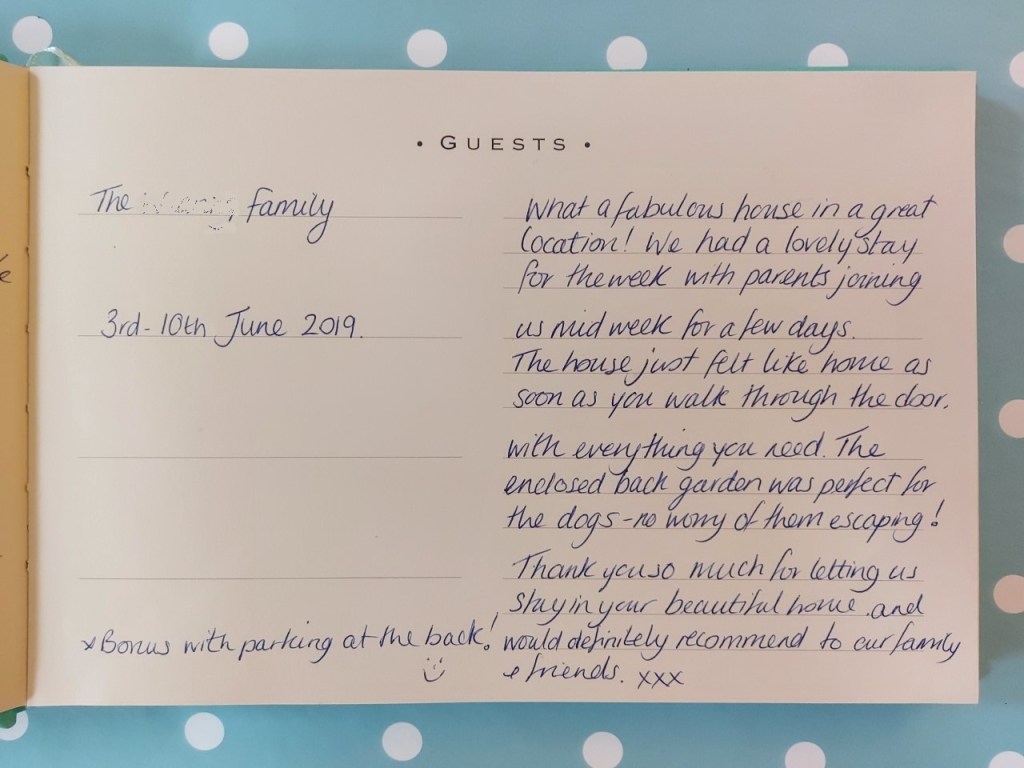 • GUESTS •
The family
3rd - 10th June 2019.
*Bonus with parking at the back!
What a fabulous house in a great
location! We had a lovely stay
for the week with parents joining
us mid week for a few days.
The house just felt like home as
soon as you walk through the door.
with everything you need. The
enclosed back garden was perfect for
the dogs - no worry of them escaping!
Thank you so much for letting us
stay in your beautiful home and
would definitely recommend to our family
& friends. xxx